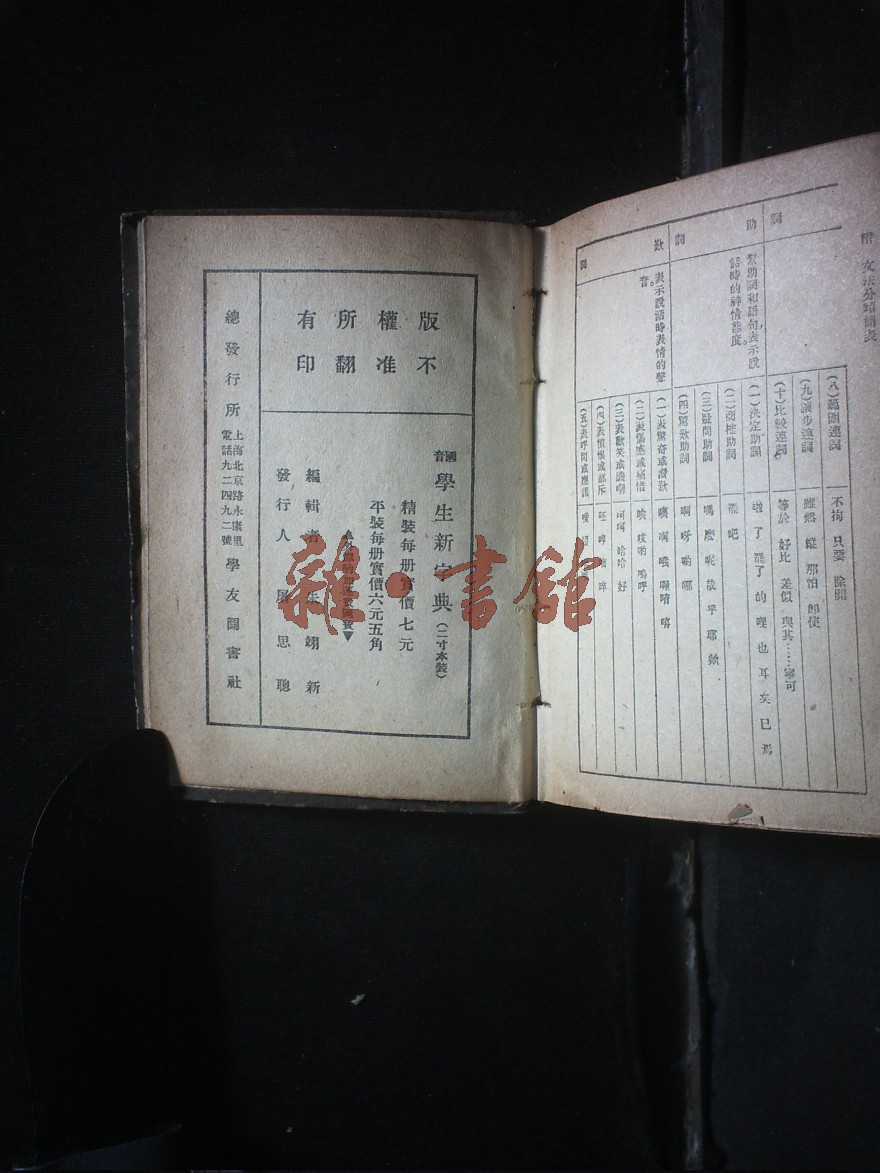 附 文法分類簡表
詞
助
詞
歎
詞
幫助詞和語句,表示說
話時的神情態度。
表示說話時表情的聲
音。
(八)範圍連詞 不拘 只要 除開
(九)讓步連詞 雖然 縱 那怕 卽使
(十)比較連詞 等於 好比 差似 與其……寧可
(一)決定助詞 啦 了 罷了 的 哩 也 耳 矣 已 焉
(二)商榷助詞 罷 吧
(三)疑問助詞 嗎 麼 呢 哉 乎 耶 歟
(四)驚歎助詞 啊 呀 喲 哪
(一)表驚奇或讚歎 咦 啊 哦
(二)表傷感或痛惜 唉 哎喲 嗚呼
(三)表歡笑或譏嘲 呵呵 哈哈 好
(四)表憤恨或鄙斥
(五)表呼問或應諾
版權所有
不准翻印
國音 學生新字典(二寸本裝)
精裝每册實價七元
平裝每册實價六元五角
編輯者 朱翊新
發行人 屠思聰
總發行所 上海北京路永慶里 電話九二四九二號 學友圖書社
雜·書館